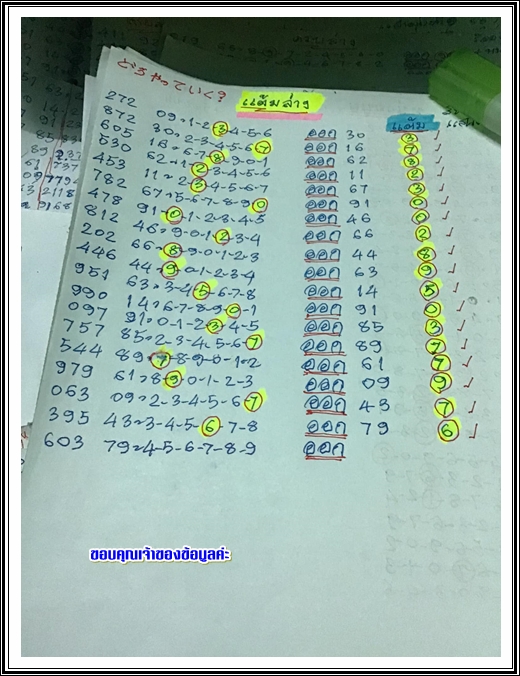 どうやっていく?
แต้มล่าง
แต้ม
272
872 09=1-2-3-4-5-6 ออก 30 3 ✓
605 30=2-3-4-5-6-7 ออก 16 7 ✓
530 16= 8-9-0-1 ออก 62 8 ✓
453 62=1-2-3-4-5-6 ออก 11 2 ✓
782 11=2-3-4-5-6-7 ออก 67 3 ✓
478 67=5-6-7-8-9-0 ออก 91 0 ✓
812 91=0-1-2-3-4-5 ออก 46 0 ✓
202 46=9-0-1-2-3-4 ออก 66 2 ✓
446 66=8-9-0-1-2-3 ออก 44 8 ✓
951 44=9-0-1-2-3-4 ออก 63 9 ✓
990 63=3-4-5-6-7-8 ออก 14 5 ✓
097 14=6-7-8-9-0-1 ออก 91 0 ✓
757 91=0-1-2-3-4-5 ออก 85 3 ✓
544 85=2-3-4-5-6-7 ออก 89 7 ✓
979 89=7-8-9-0-1-2 ออก 61 7 ✓
063 61=8-9-0-1-2-3 ออก 09 9 ✓
395 09=2-3-4-5-6-7 ออก 43 7 ✓
603 43=3-4-5-6-7-8 ออก 79 6 ✓
79=4-5-6-7-8-9 ออก
ขอบคุณเจ้าของข้อมูลค่ะ